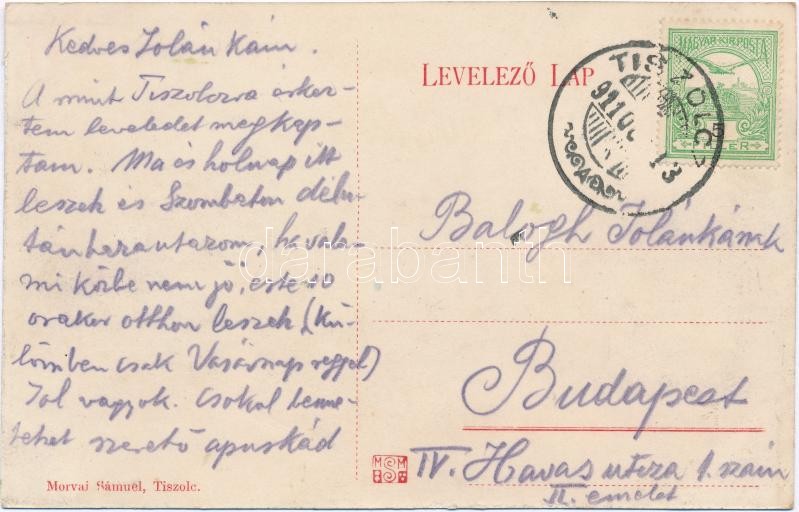 Kedves Jolán Kám.
A mint Tiszolczra érkez-
tem leveledet megkap-
tam. Ma és holnap itt
leszek és Szombaton délu-
tán haza utazom, ha vala-
mi közbe nem jő, este 10
orakor otthon leszek (Kü-
lömben csak Vasárnap reggel)
Jol vagyok. Csokol benne-
teket szerető apuskád
Morvai Sámuel, Tiszolc.
LEVELEZŐ LAP
MAGYAR KIR. POSTA
TISZOLC
Balogh Jolánkának
Budapest
IV. Havas utcza 1. szám
II. emelet
MSM
darabanth